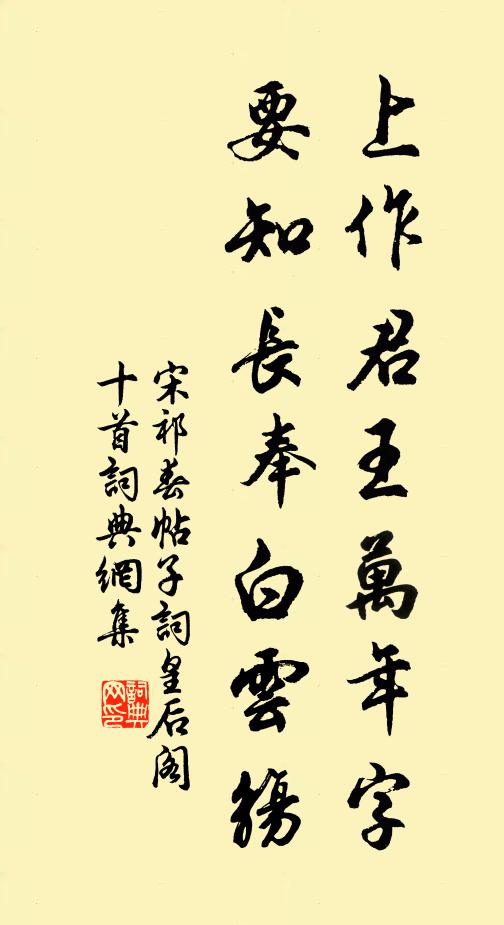 上作君王萬年字
要知長奉白雲觴
宋祁春帖子詞皇后阁
十首詞典網集
詞典网印